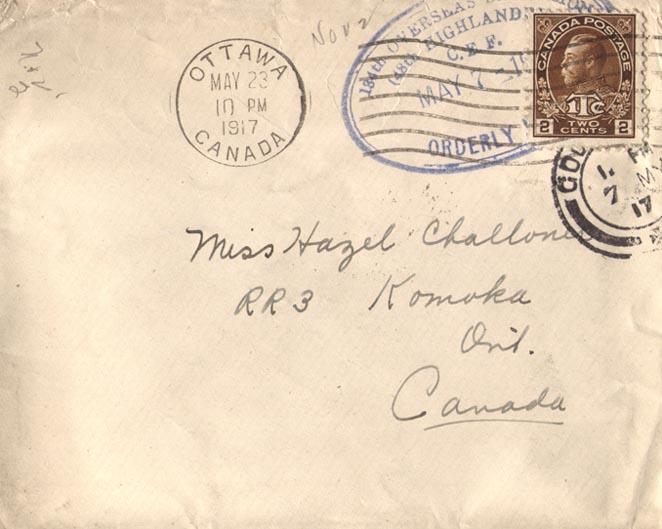 Nov 2
OTTAWA
MAY 23
10 PM
1917
CANADA
134th OVERSEAS
(48th HIGHLANDERS
C.E.F.
MAY 7
ORDERLY
CANADA POSTAGE
1Tc
2 TWO 2
CENTS
17
Miss Hazel Challoner
RR3 Komoka
Ont.
Canada